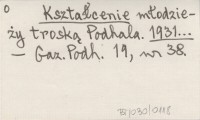 o
Kształcenie młodzie-
ży troską Podhala. 1931...
— Gaz. Podh. 19, nr 38.